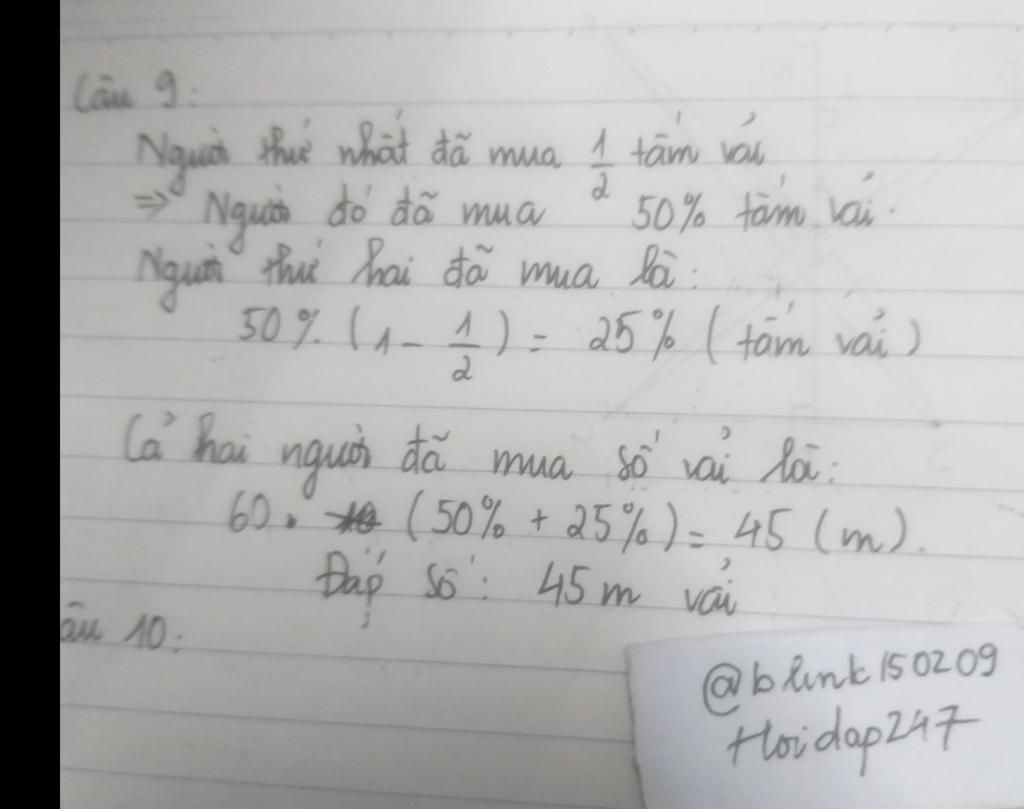 Câu 9:
Người thứ nhất đã mua 1/2 tấm vải
=> Người đó đã mua 50% tấm vải.
Người thứ hai đã mua là:
50%. (1 - 1/2) = 25% (tấm vải)
Cả hai người đã mua số vải là:
60. (50% + 25%) = 45 (m).
Đáp số: 45 m vải
âu 10:
@blink150209
Hoidap247